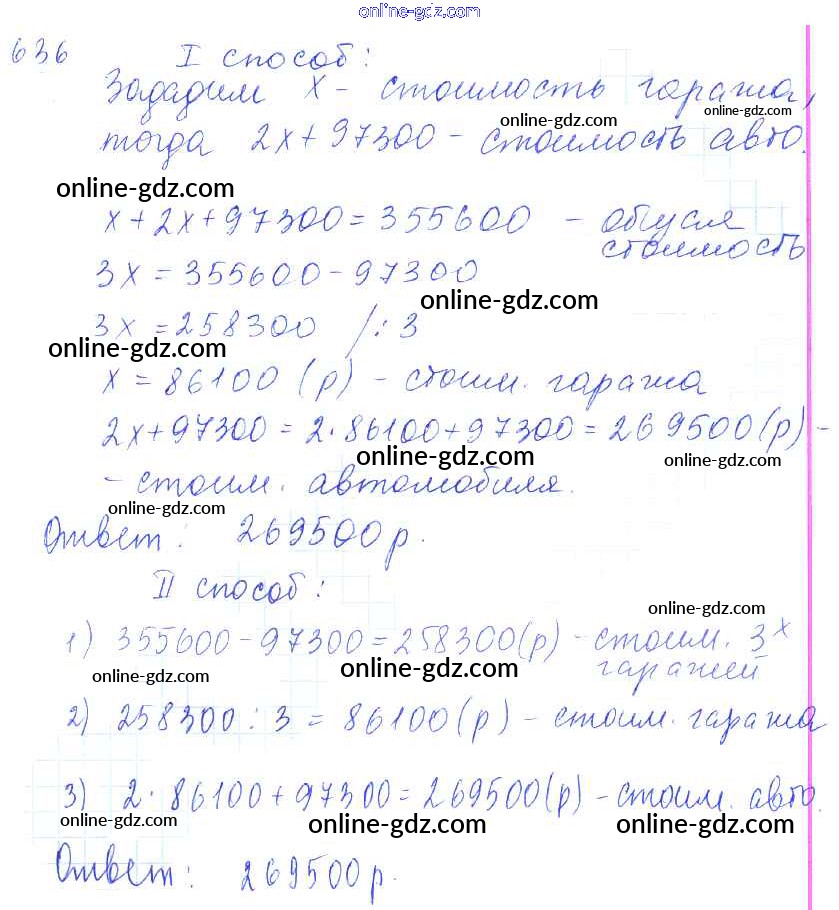 online-gdz.com
636 I способ:
Зададим x - стоимость гаража,
online-gdz.com
online-gdz.com
тогда 2x+97300 - стоимость авто.
online-gdz.com
x+2x+97300=355600 - общая
стоимость
3x=355600-97300
online-gdz.com
3x=258300 /:3
online-gdz.com
x=86100 (р) - стоим. гаража
2x+97300=2·86100+97300=269500(р)-
online-gdz.com
online-gdz.com
- стоим. автомобиля.
online-gdz.com
Ответ: 269500р.
II способ:
online-gdz.com
1) 355600-97300=258300(р) - стоим. 3х
гаражей
online-gdz.com
online-gdz.com
2) 258300:3=86100(р) - стоим. гаража
3) 2·86100+97300=269500(р) - стоим. авто.
online-gdz.com
online-gdz.com
online-gdz.com
Ответ: 269500р.